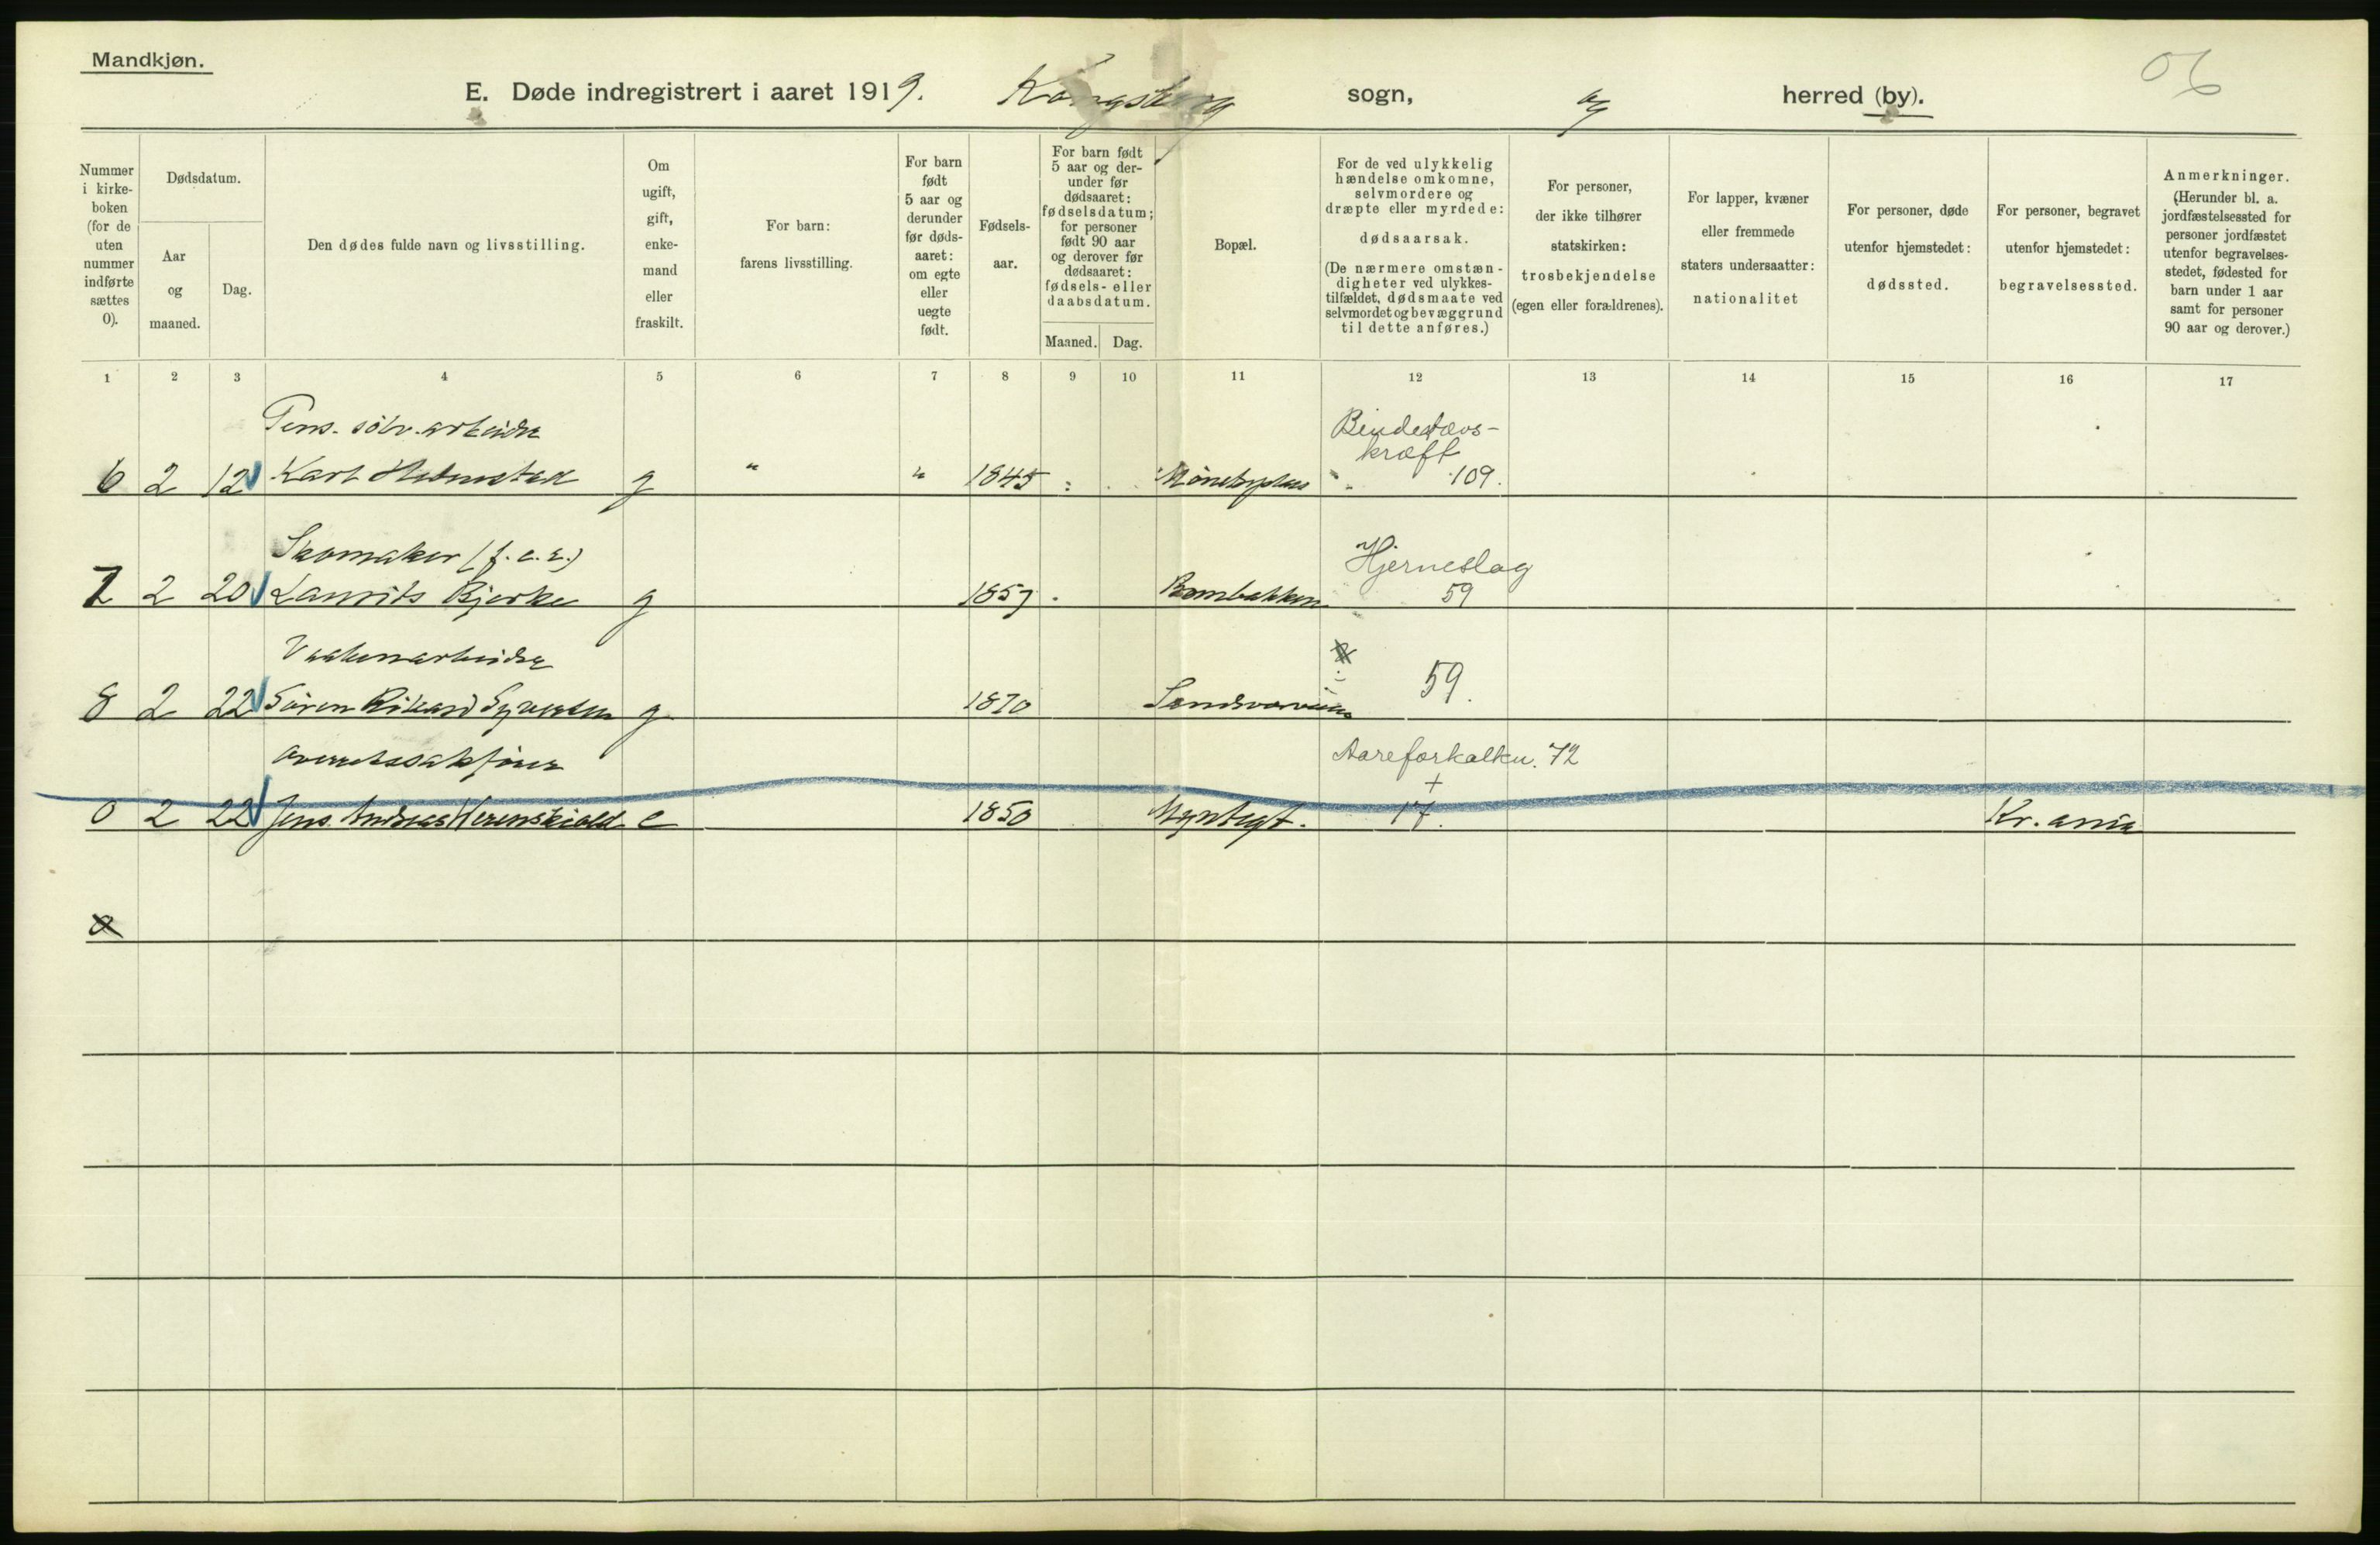 Mandkjøn.
06
E. Døde indregistrert i aaret 1919. Kongsberg sogn, og herred (by).
Nummer
i kirke-
boken
(for de
uten
nummer
indførte
sættes
0).
Dødsdatum.
Aar
og
maaned.
Dag.
Den dødes fulde navn og livsstilling.
Om
ugift,
gift,
enke-
mand
eller
fraskilt.
For barn:
farens livsstilling.
For barn
født
5 aar og
derunder
før døds-
aaret:
om egte
eller
uegte
født.
Fødsels-
aar.
For barn født
5 aar og der-
under før
dødsaaret:
fødselsdatum;
for personer
født 90 aar
og derover før
dødsaaret:
fødsels- eller
daabsdatum.
Maaned. Dag.
Bopæl.
For de ved ulykkelig
hændelse omkomne,
selvmordere og
dræpte eller myrdede:
dødsaarsak.
(De nærmere omstæn-
digheter ved ulykkes-
tilfældet, dødsmaate ved
selvmordet og bevæggrund
til dette anføres.)
For personer,
der ikke tilhører
statskirken:
trosbekjendelse
(egen eller forældrenes).
For lapper, kvæner
eller fremmede
staters undersaatter:
nationalitet
For personer, døde
utenfor hjemstedet:
dødssted.
For personer, begravet
utenfor hjemstedet:
begravelsessted.
Anmerkninger.
(Herunder bl. a.
jordfæstelsessted for
personer jordfæstet
utenfor begravelses-
stedet, fødested for
barn under 1 aar
samt for personer
90 aar og derover.)
1 2 3 4 5 6 7 8 9 10 11 12 13 14 15 16 17
Pens. sølv.arbeider Bindevævs-
kræft
6 2 12 Karl g " " 1845 109.
Skomaker (f.e.r.) Hjerneslag
7 2 20 Laurits Bjerke g 1857 Bombakken 59
Vaabenarbeider
8 2 22 Sören Rikard Syvertsen g 1870 59.
Overretssakfører Aareforkalkn. 72
+
0 2 22 Jens Andreas e 1850 Myntegt. 17. Kr.ania
0